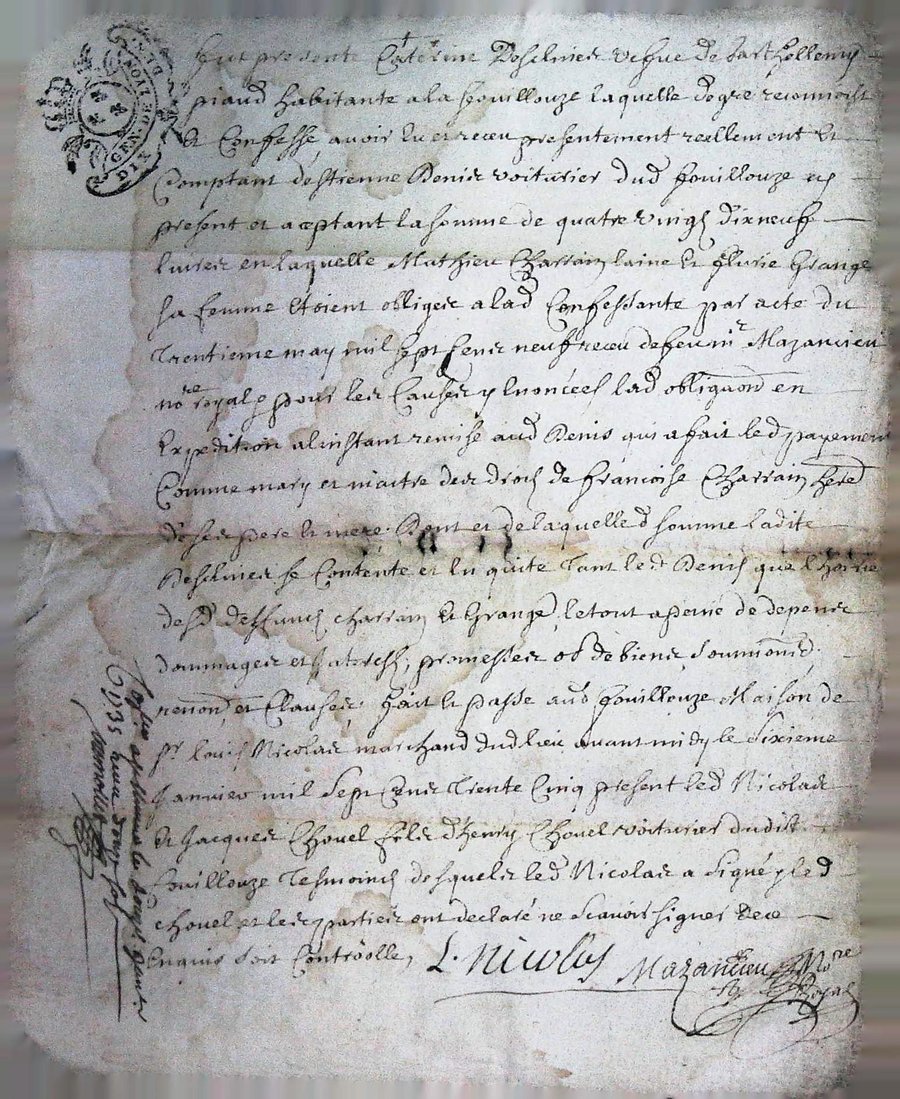 GEN. DE LION
DIX DEN.
fut presente Caterine Deschnier vefve de Barthellemy
piaud habitante a la fouillouze laquelle de gre reconnoist
Et Confesse avoir Eu et receu presentement reellement Et
Comptant d'estienne Denis voiturier dud fouillouze icy
present et aceptant la somme de quatre vingt dix neuf
livres en laquelle Mathieu Charrain laine Et flurie Grange
sa femme Etoient obliges a lad Confessante par acte du
Trentieme may mil sept Cens neuf receu de feu mr Mazancieu
nore royal pour les Causes y Enoncées lad obligaon en
Expedition a linstant remise aud Denis qui a fait led payement
Comme mary et maitre des droits de francoise Charrain hered
de ses pere Et mere Dont et de laquelle d somme ladite
Deschnier se Contente et En quite Tant led Denis que l'hoirie
desd deffunts Charrain Et Grange, le tout a peine de depens
dommages et interests, promesses ob de biens soumions
renond et Clauses fait Et passe aud fouillouze Maison de
sr louis Nicolas marchand dud lieu avant midy le sixieme
Janvier mil sept Cens Trente Cinq present led Nicolas
Et Jacques Chovel fils d'henry Chovel voiturier dudit
fouillouze Tesmoins desquels led Nicolas a signé led
chovel et les parties ont declaré ne scavoir signer de ce
Enquis soit Controolle,
L. Nicolas
Mazancieu Nore
Royal
1735 douze sols